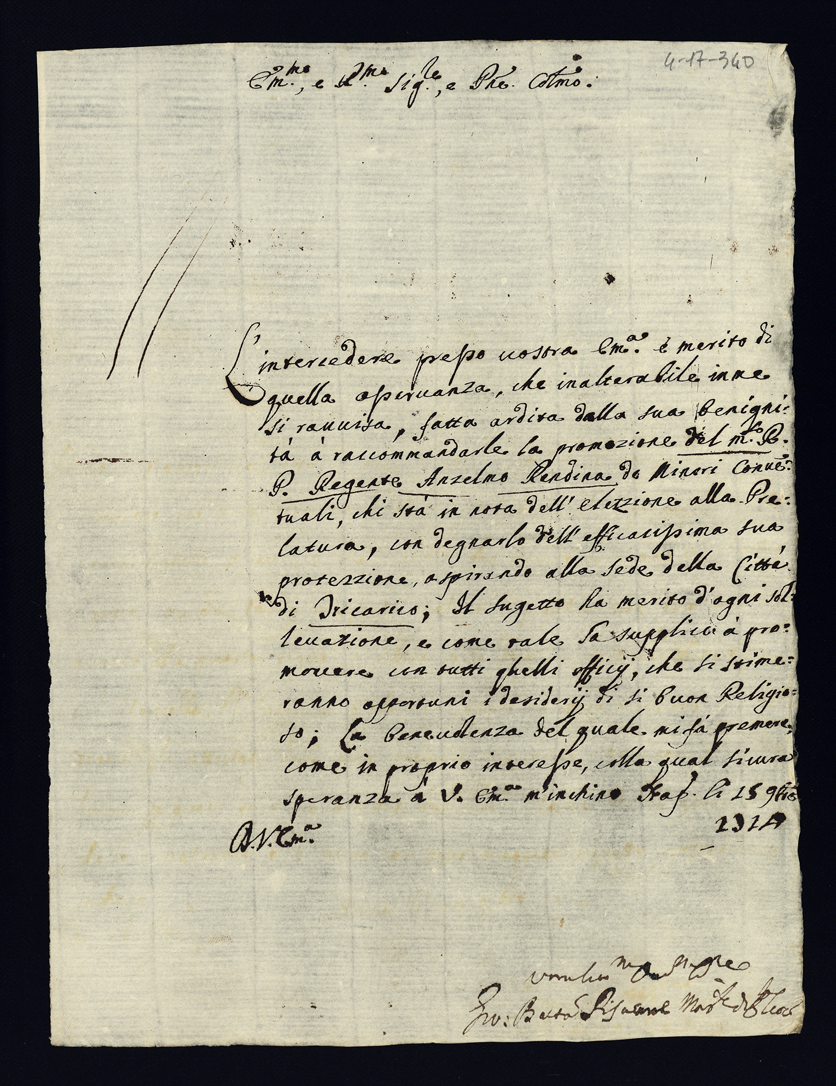 4-17-340
Em.mo, e Rd.mo Sig.re, e Pñe. Colmo.
L'intercedere presso vostra Em.a è merito di
quella osseruanza, che inalterabile in me
si rauuisa, fatta ardita dalla sua benigni:
tà à raccommandarle la promozione del m.o R.
P. Regente Anzelmo Rendina de Minori Conue:
tuali, chi stà in nota dell'elezzione alla Pre:
latura, con degnarlo dell'efficacissima sua
protezzione, aspirando alla sede della Città
di Tricarico; Il sugetto ha merito d'ogni sol:
leuazione, e come tale La supplico à pro:
mouere con tutti quelli officij, che si stime:
ranno opportuni i desiderij di si buon Religio:
so; La beneuolenza del quale mi fà premere,
come in proprio interesse, colla qual sicura
speranza à V. Em.a m'inchino li 15 9bre
1714
D.V.Em.a
Gio: Batta Pisanelli